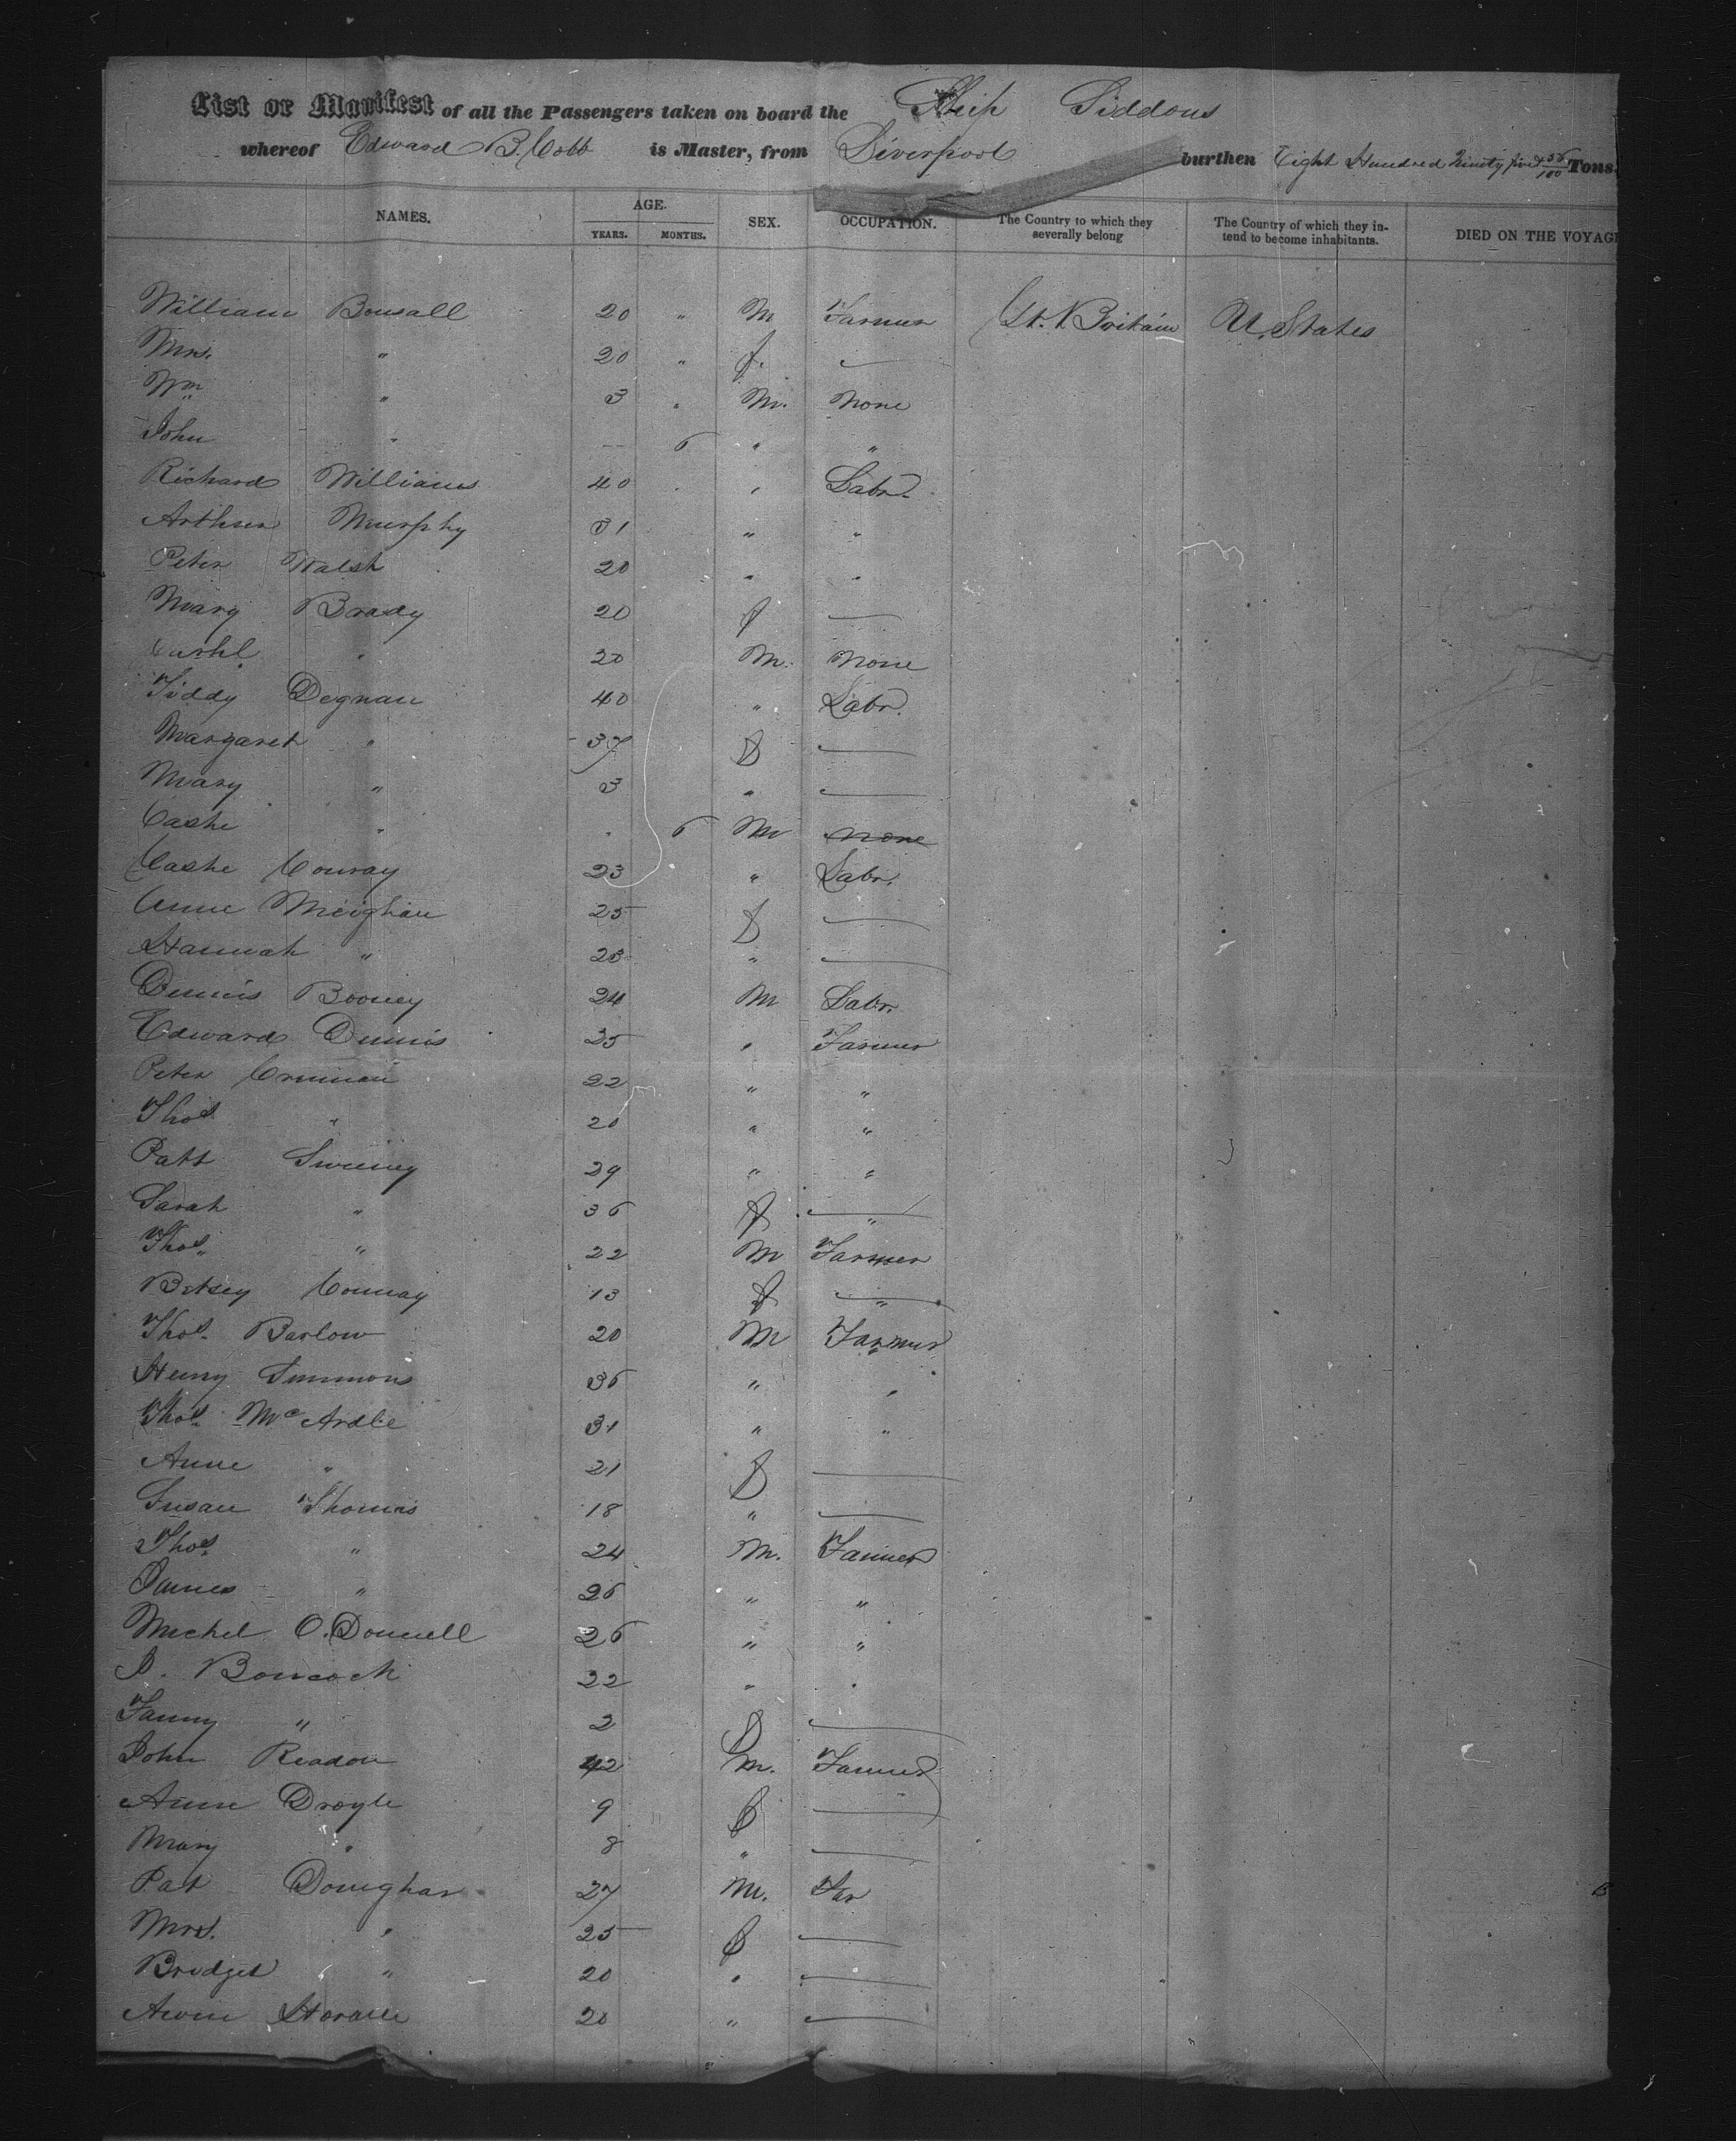 List or Manifest of all the Passengers taken on board the Ship Siddons
whereof Edward B. Cobb is Master, from Liverpool burthen Eight Hundred Ninety five & 56/100 Tons.
NAMES. AGE. YEARS. MONTHS. SEX. OCCUPATION. The Country to which they severally belong The Country of which they intend to become inhabitants. DIED ON THE VOYAG
William Bonsall 20 " M Farmer Gt. Britain U. States
Mrs. " 20 " f. —
Wm " 3 " M. None
John " — 6 " "
Richard Williams 40 " " Labr.
Arthur Murphy 31 " "
Peter Walsh 20 " "
Mary Brady 20 f —
" 20 M. None
Tiddy Degnan 40 " Labr.
Margaret " 37 f —
Mary " 3 " —
Cashe " " 6 M none
Cashe Conray 23 " Labr.
Anne Meighan 25 f —
Hannah " 23 " —
Dennis Booney 24 M Labr.
Edward Dennis 25 " Farmer
Peter 22 " "
Thos " 20 " "
Patt Sweeney 29 " "
Sarah " 36 f — "
Thos. " 22 M Farmer
Betsey Conway 13 f — "
Thos. Barlow 20 M Farmer
Henry Simmons 36 " "
Thos. McArdle 31 " "
Anne " 21 f —
Susan Thomas 18 " —
Thos. " 24 M. Farmer
James " 26 " "
Michel O.Donnell 26 " "
22 " "
Fanny " 2 f —
John Readon 42 M. Farmer
Anne Droyle 9 f —
Mary " 8 " —
Pat Donighan 27 M. Far
Mrs. " 25 f —
Bridget " 20 " —
20 " —